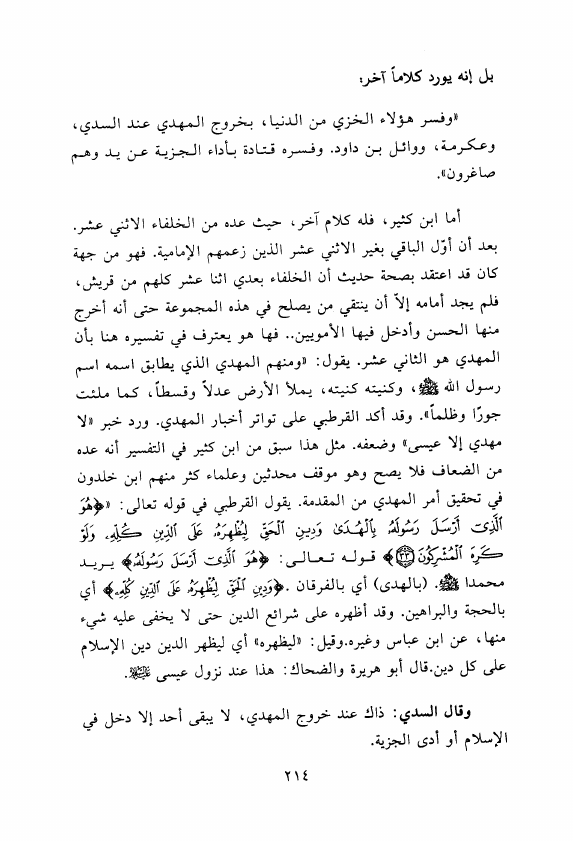 بل إنه يورد كلاماً آخر:
«وفسر هؤلاء الخزي من الدنيا، بخروج المهدي عند السدي،
وعكرمة، ووائل بن داود. وفسره قتادة بأداء الجزية عن يد وهم
صاغرون».
أما ابن كثير، فله كلام آخر، حيث عده من الخلفاء الاثني عشر.
بعد أن أوّل الباقي بغير الاثني عشر الذين زعمهم الإمامية. فهو من جهة
كان قد اعتقد بصحة حديث أن الخلفاء بعدي اثنا عشر كلهم من قريش،
فلم يجد أمامه إلاّ أن ينتقي من يصلح في هذه المجموعة حتى أنه أخرج
منها الحسن وأدخل فيها الأمويين.. فها هو يعترف في تفسيره هنا بأن
المهدي هو الثاني عشر. يقول: «ومنهم المهدي الذي يطابق اسمه اسم
رسول الله ﷺ، وكنيته كنيته، يملأ الأرض عدلاً وقسطاً، كما ملئت
جورًا وظلماً». وقد أكد القرطبي على تواتر أخبار المهدي. ورد خبر «لا
مهدي إلا عيسى» وضعفه. مثل هذا سبق من ابن كثير في التفسير أنه عده
من الضعاف فلا يصح وهو موقف محدثين وعلماء كثر منهم ابن خلدون
في تحقيق أمر المهدي من المقدمة. يقول القرطبي في قوله تعالى: «﴿هُوَ
ٱلَّذِىٓ أَرْسَلَ رَسُولَهُۥ بِٱلْهُدَىٰ وَدِينِ ٱلْحَقِّ لِيُظْهِرَهُۥ عَلَى ٱلدِّينِ كُلِّهِۦ وَلَوْ
كَرِهَ ٱلْمُشْرِكُونَ ٣٣﴾ قوله تعالى: ﴿هُوَ ٱلَّذِىٓ أَرْسَلَ رَسُولَهُۥ﴾ يريد
محمدا ﷺ. (بالهدى) أي بالفرقان .﴿وَدِينِ ٱلْحَقِّ لِيُظْهِرَهُۥ عَلَى ٱلدِّينِ كُلِّهِۦ﴾ أي
بالحجة والبراهين. وقد أظهره على شرائع الدين حتى لا يخفى عليه شيء
منها، عن ابن عباس وغيره.وقيل: «ليظهره» أي ليظهر الدين دين الإسلام
على كل دين.قال أبو هريرة والضحاك: هذا عند نزول عيسى عليه السلام.
وقال السدي: ذاك عند خروج المهدي، لا يبقى أحد إلا دخل في
الإسلام أو أدى الجزية.
٢١٤